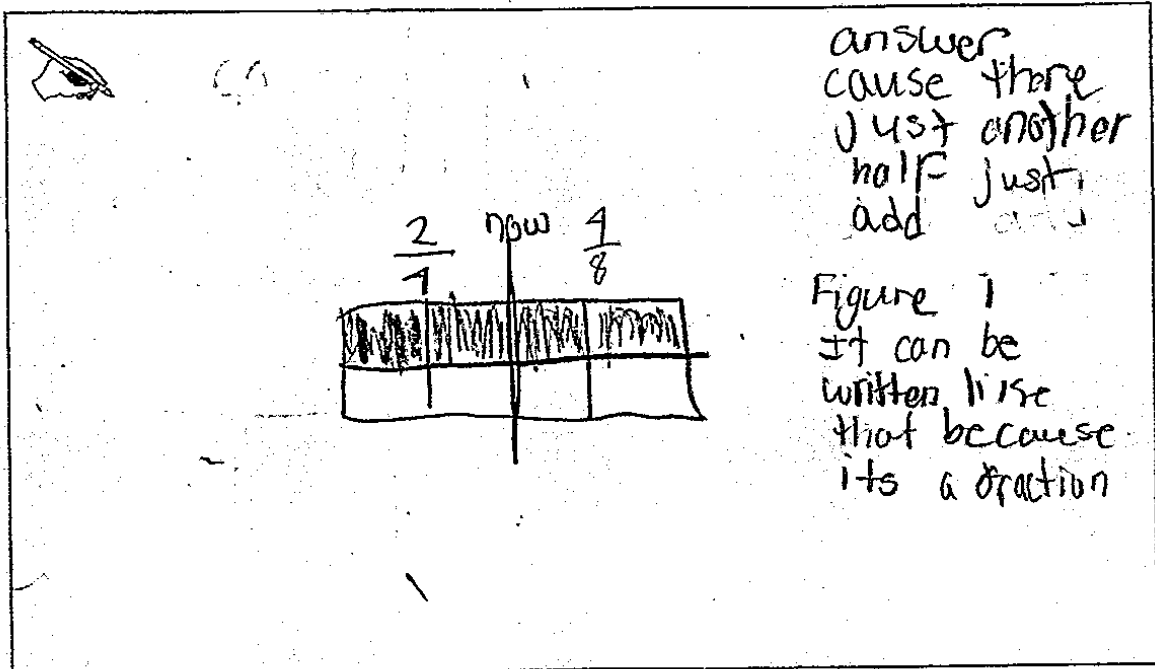 answer
cause there
just another
half just
add
2/4 now 4/8
Figure 1
It can be
written like
that because
its a fraction